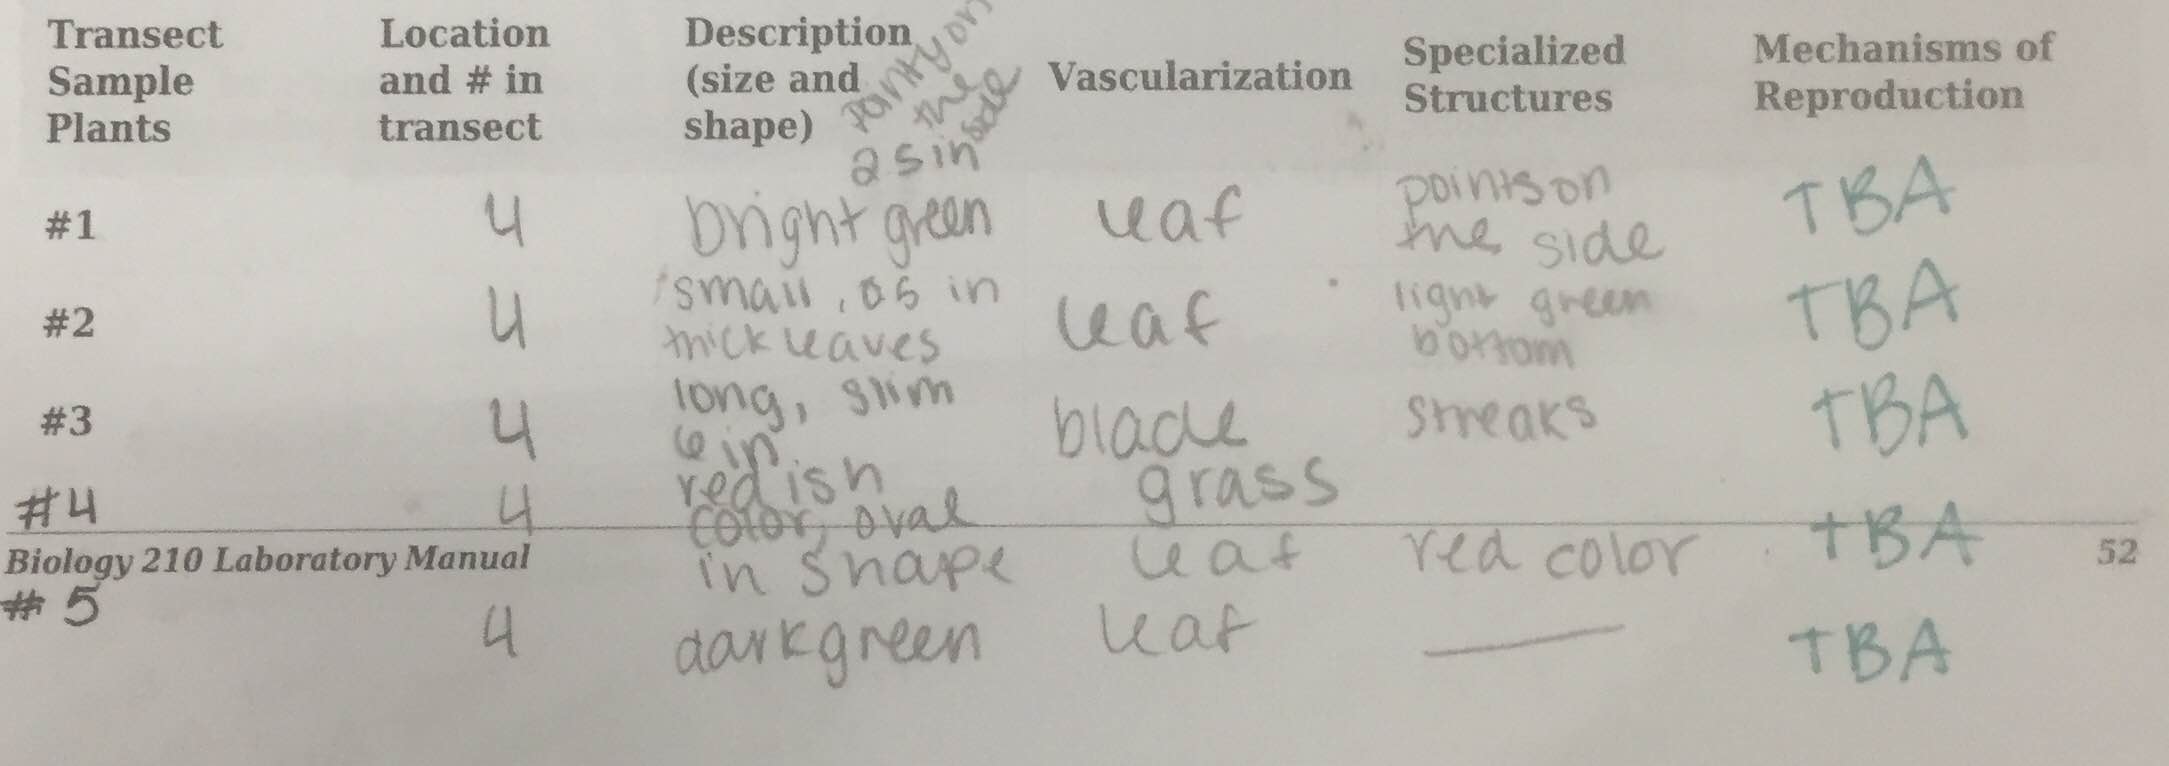 Transect Sample Plants
Location and # in transect
Description (size and shape)
Vascularization
Specialized Structures
Mechanisms of Reproduction
pointy on
the
side
#1
4
bright green
leaf
points on
the side
TBA
#2
4
small, as in
thick leaves
leaf
light green
bottom
TBA
#3
4
long, slim
6 in
blade
grass
streaks
TBA
#4
4
redish
color, oval
in shape
leaf
red color
TBA
Biology 210 Laboratory Manual
52
#5
4
darkgreen
leaf
—
TBA